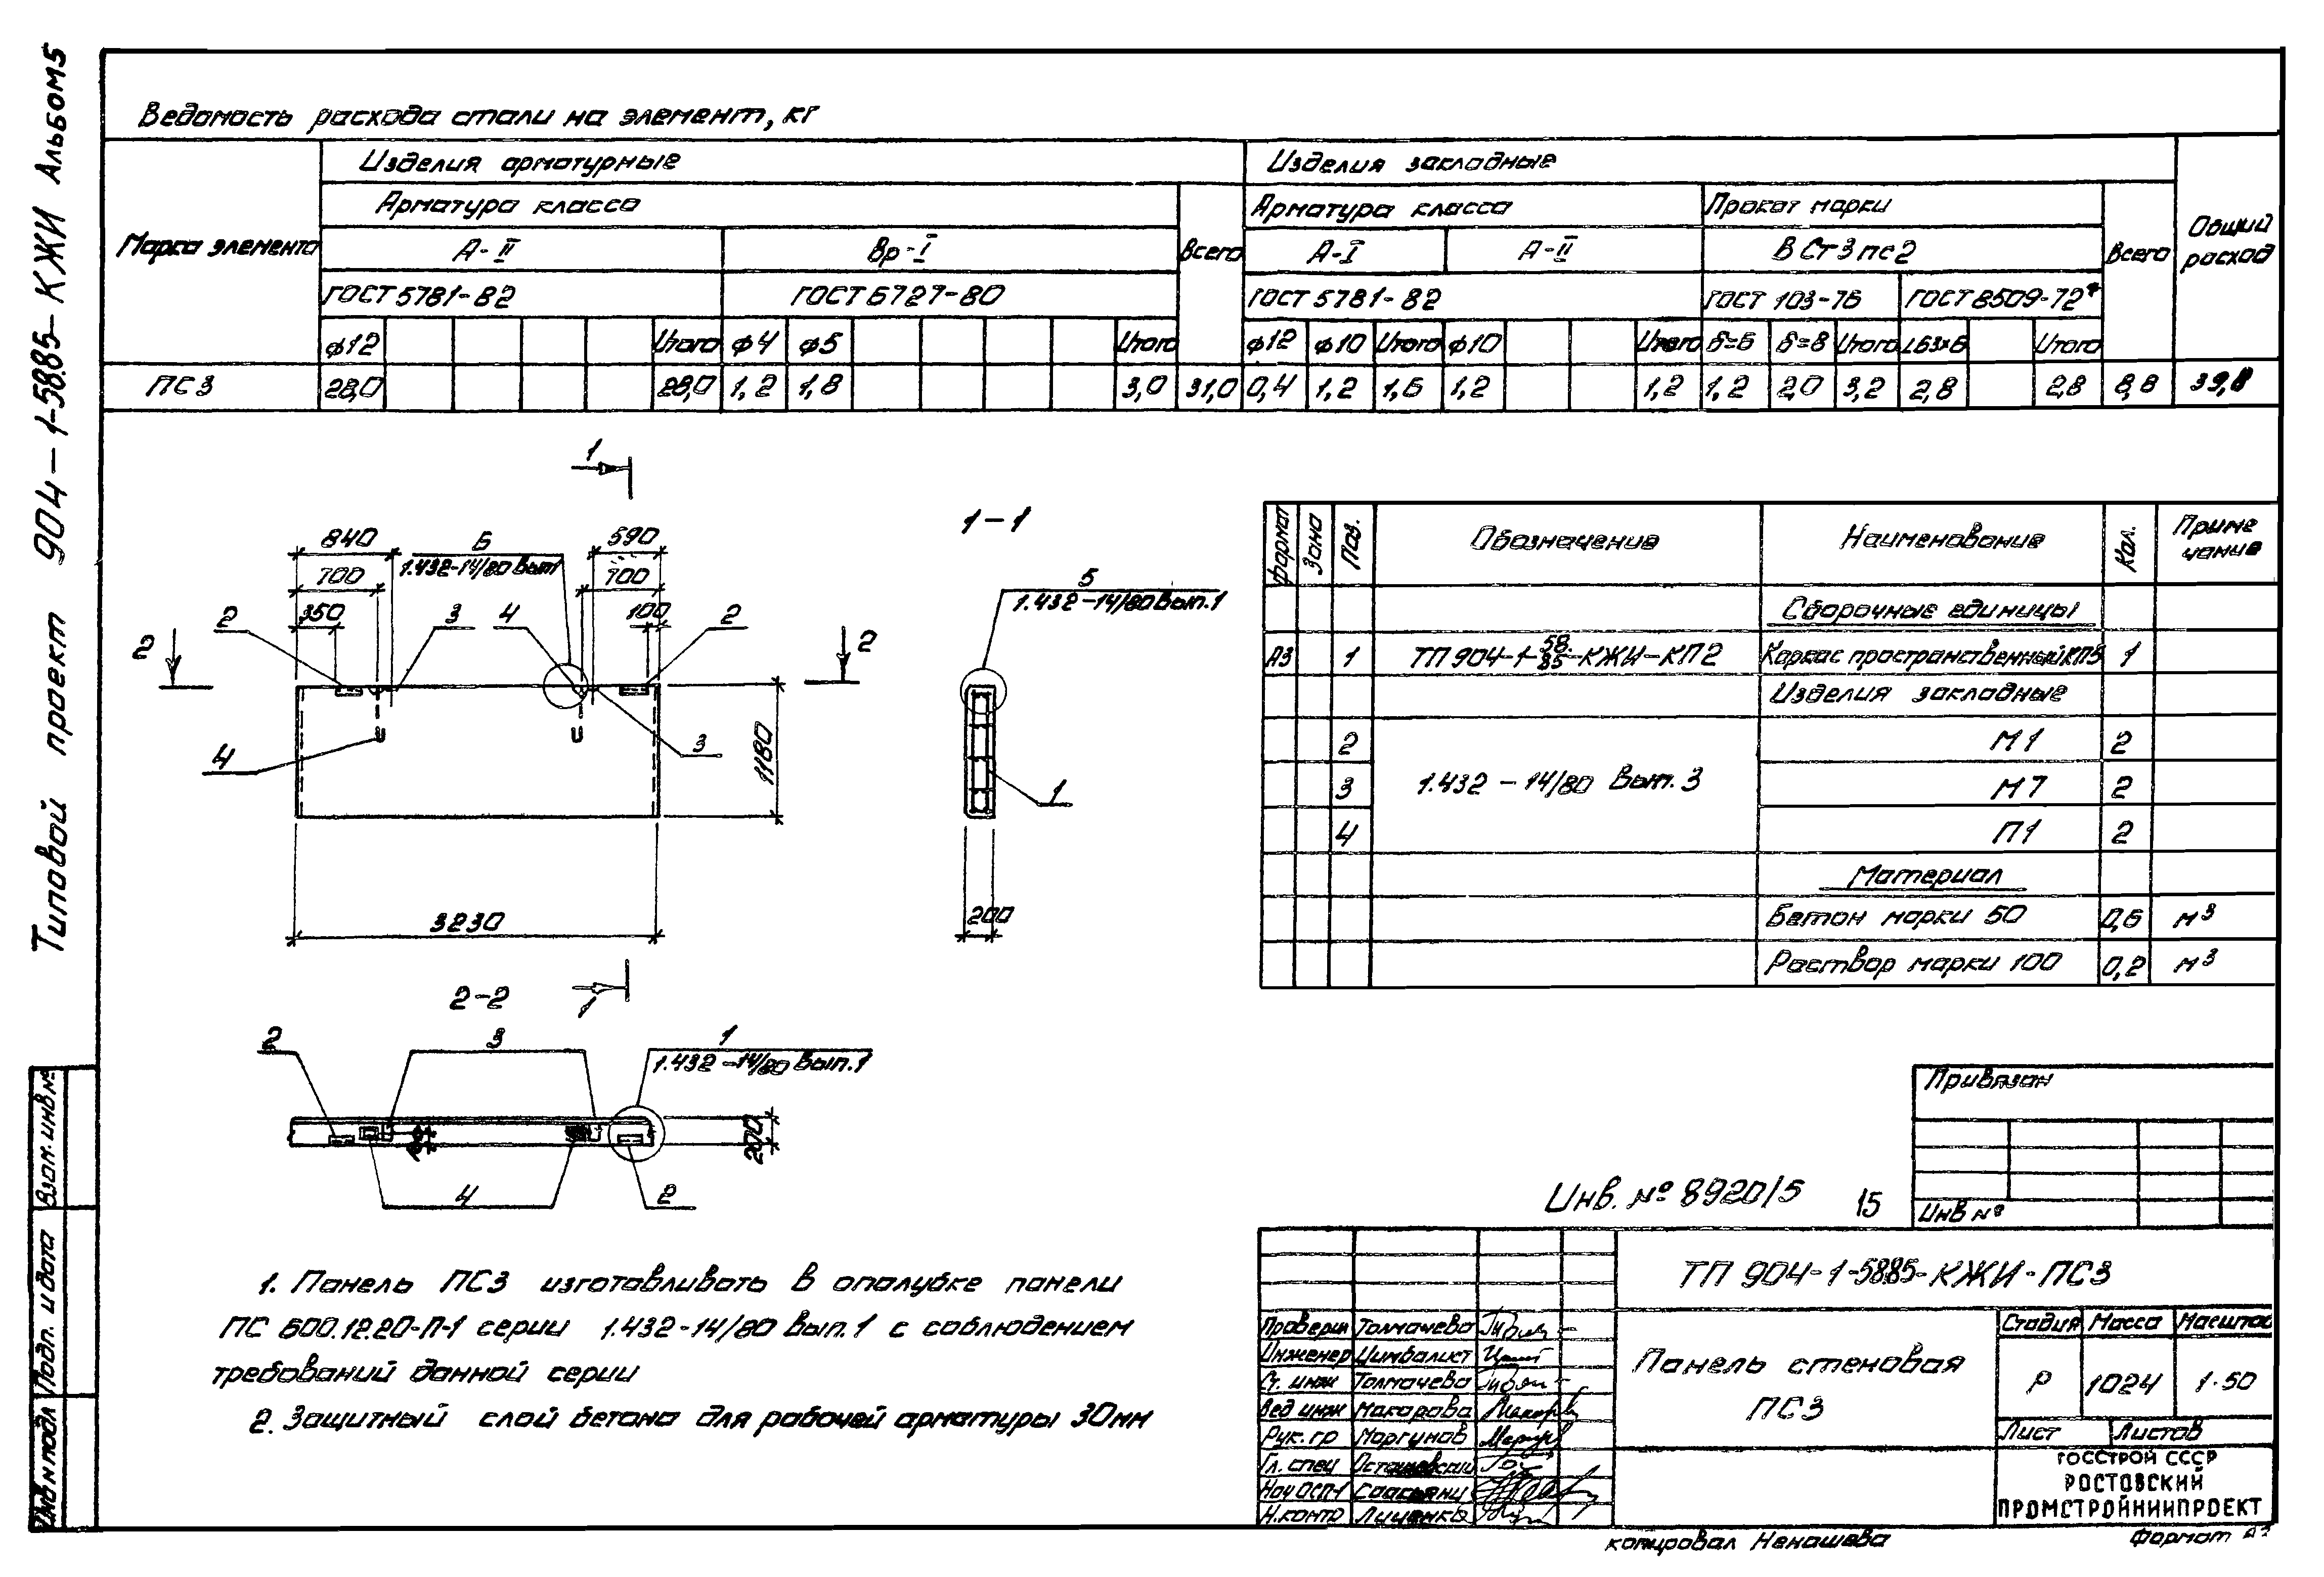 Типовой проект 904-1-58.85-КЖИ Альбом 5
Ведомость расхода стали на элемент, кг
Марка элемента
Изделия арматурные
Изделия закладные
Общий расход
Арматура класса
Всего
Арматура класса
Прокат марки
Всего
А-II
Вр-I
А-I
А-II
ВСт3пс2
ГОСТ 5781-82
ГОСТ 6727-80
ГОСТ 5781-82
ГОСТ 103-76
ГОСТ 8509-72*
ф12 Итого ф4 ф5 Итого ф12 ф10 Итого ф10 Итого δ=6 δ=8 Итого L63×6 Итого
ПС3 28,0 28,0 1,2 1,8 3,0 31,0 0,4 1,2 1,6 1,2 1,2 1,2 2,0 3,2 2,8 2,8 8,8 39,8
1
840
Б
1.432-14/80 Вып1
590
700
700
350
100
2
3
4
2
2
2
4
3
1180
3230
1
1-1
5
1.432-14/80 Вып.1
1
200
2-2
2
3
1
1.432-14/80 Вып.1
200
4
2
Формат Зона Поз. Обозначение Наименование Кол. Примечание
Сборочные единицы
А3 1 ТП 904-1-58.85-КЖИ-КП2 Каркас пространственный КП3 1
Изделия закладные
2 М1 2
3 1.432-14/80 Вып.3 М7 2
4 П1 2
Материал
Бетон марки 50 0,6 м³
Раствор марки 100 0,2 м³
1. Панель ПС3 изготавливать в опалубке панели
ПС 600.12.20-П-1 серии 1.432-14/80 Вып.1 с соблюдением
требований данной серии
2. Защитный слой бетона для рабочей арматуры 30мм
Привязан
Инв №
Инв. № 8920/5 15
ТП 904-1-5885-КЖИ-ПС3
Проверил Толмачева
Инженер Цимбалист
Ст. инж Толмачева
Вед инж Макарова
Рук. гр Моргунов
Гл. спец
Нач ОСП-1
Н.контр
Панель стеновая
ПС3
Стадия Масса Масштаб
Р 1024 1·50
Лист Листов
ГОССТРОЙ СССР
РОСТОВСКИЙ
ПРОМСТРОЙНИИПРОЕКТ
копировал Ненашева
Формат А3
Взам. инв №
Подп. и дата
Инв № подл